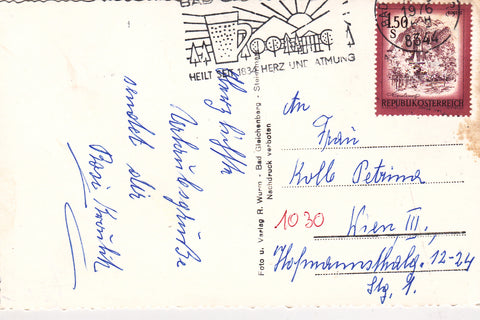 BAD
HEILT SEIT 1834 HERZ UND ATMUNG
1976
8344
1.50
S
REPUBLIK ÖSTERREICH
Urlaubsgrüße
sendet dir
Foto u. Verlag R. Wurm - Bad Gleichenberg - Steiermark
Nachdruck verboten
An
Frau
Kolb Petrina
1030 Wien III.,
Hofmannsthalg. 12-24
Stg. 9.